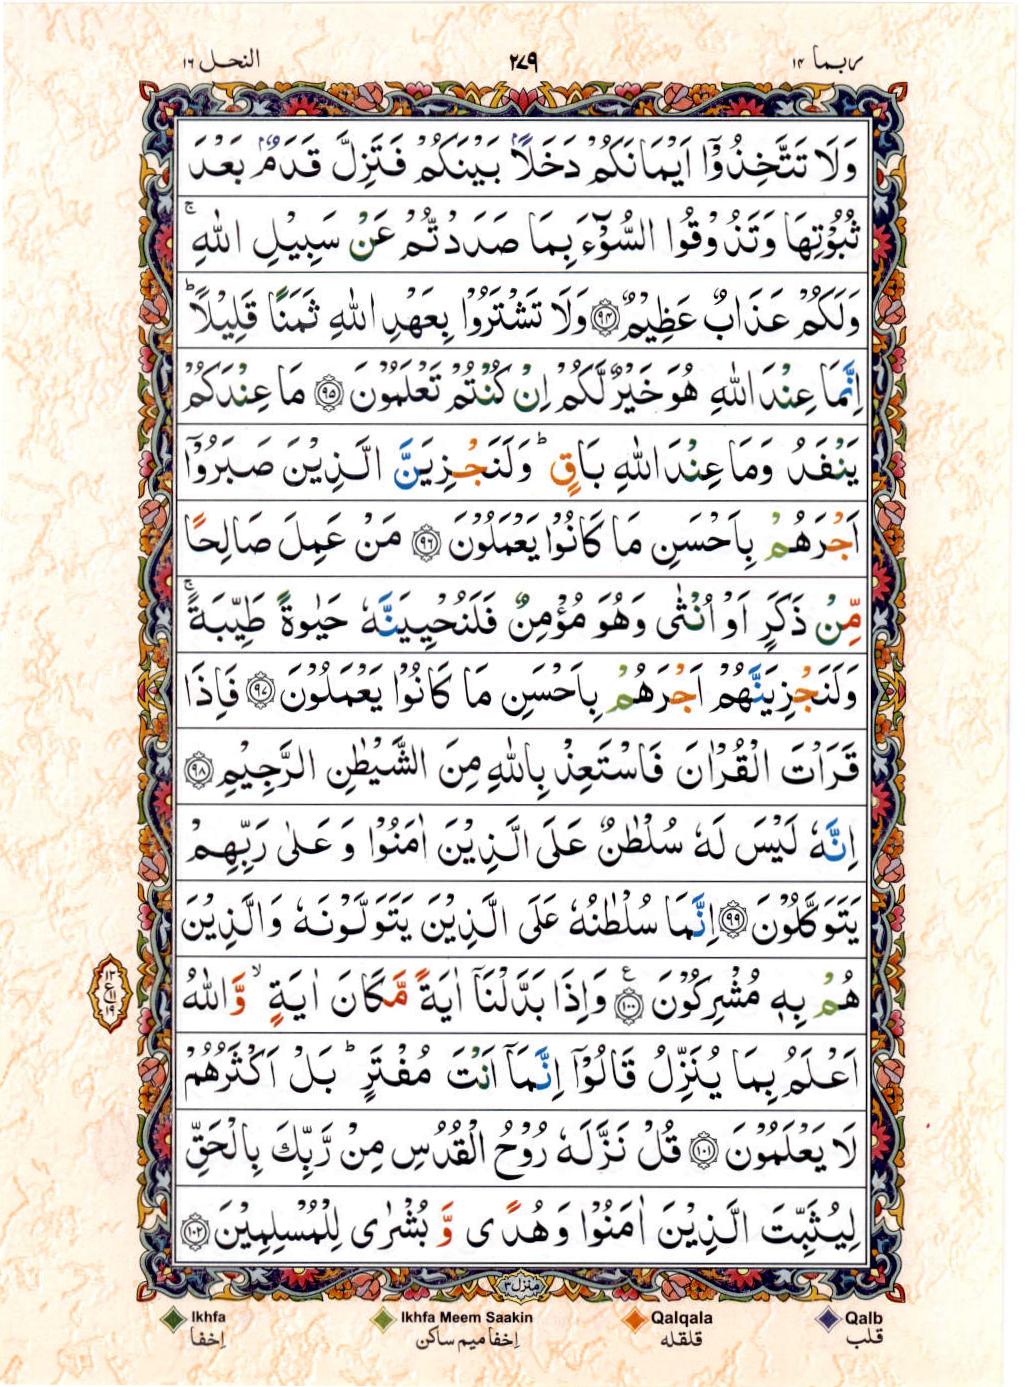 ربما ۱۴ ۲۷۹ النحل ۱۶
وَلَا تَتَّخِذُوْۤا اَيْمَانَكُمْ دَخَلًاۢ بَيْنَكُمْ فَتَزِلَّ قَدَمٌۢ بَعْدَ
ثُبُوْتِهَا وَتَذُوْقُوا السُّوْٓءَ بِمَا صَدَدْتُّمْ عَنْ سَبِيْلِ اللّٰهِ ۚ
وَلَكُمْ عَذَابٌ عَظِيْمٌ ﴿۹۴﴾ وَلَا تَشْتَرُوْا بِعَهْدِ اللّٰهِ ثَمَنًا قَلِيْلًا ؕ
اِنَّمَا عِنْدَ اللّٰهِ هُوَ خَيْرٌ لَّكُمْ اِنْ كُنْتُمْ تَعْلَمُوْنَ ﴿۹۵﴾ مَا عِنْدَكُمْ
يَنْفَدُ وَمَا عِنْدَ اللّٰهِ بَاقٍ ؕ وَلَنَجْزِيَنَّ الَّذِيْنَ صَبَرُوْۤا
اَجْرَهُمْ بِاَحْسَنِ مَا كَانُوْا يَعْمَلُوْنَ ﴿۹۶﴾ مَنْ عَمِلَ صَالِحًا
مِّنْ ذَكَرٍ اَوْ اُنْثٰى وَهُوَ مُؤْمِنٌ فَلَنُحْيِيَنَّهٗ حَيٰوةً طَيِّبَةً ۚ
وَلَنَجْزِيَنَّهُمْ اَجْرَهُمْ بِاَحْسَنِ مَا كَانُوْا يَعْمَلُوْنَ ﴿۹۷﴾ فَاِذَا
قَرَاْتَ الْقُرْاٰنَ فَاسْتَعِذْ بِاللّٰهِ مِنَ الشَّيْطٰنِ الرَّجِيْمِ ﴿۹۸﴾
اِنَّهٗ لَيْسَ لَهٗ سُلْطٰنٌ عَلَى الَّذِيْنَ اٰمَنُوْا وَعَلٰى رَبِّهِمْ
يَتَوَكَّلُوْنَ ﴿۹۹﴾ اِنَّمَا سُلْطٰنُهٗ عَلَى الَّذِيْنَ يَتَوَلَّوْنَهٗ وَالَّذِيْنَ
هُمْ بِهٖ مُشْرِكُوْنَ ﴿۱۰۰﴾ ع وَاِذَا بَدَّلْنَاۤ اٰيَةً مَّكَانَ اٰيَةٍ ۙ وَّاللّٰهُ
۱۳ ع ۱۱ ۱۹
اَعْلَمُ بِمَا يُنَزِّلُ قَالُوْۤا اِنَّمَاۤ اَنْتَ مُفْتَرٍ ؕ بَلْ اَكْثَرُهُمْ
لَا يَعْلَمُوْنَ ﴿۱۰۱﴾ قُلْ نَزَّلَهٗ رُوْحُ الْقُدُسِ مِنْ رَّبِّكَ بِالْحَقِّ
لِيُثَبِّتَ الَّذِيْنَ اٰمَنُوْا وَهُدًى وَّبُشْرٰى لِلْمُسْلِمِيْنَ ﴿۱۰۲﴾
منزل ۳
Ikhfa Ikhfa Meem Saakin Qalqala Qalb
اِخفا اِخفا میم ساکن قلقله قلب